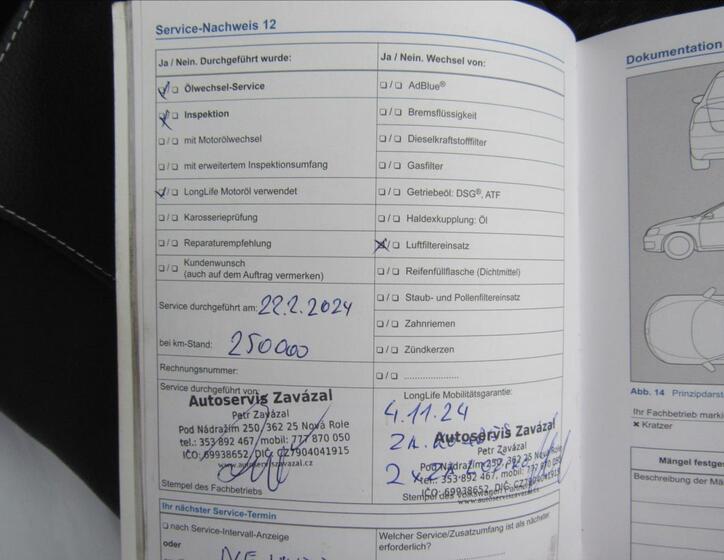 Service-Nachweis 12
Dokumentation
Ja / Nein. Durchgeführt wurde:
Ja / Nein. Wechsel von:
Ölwechsel-Service
Inspektion
mit Motorölwechsel
mit erweitertem Inspektionsumfang
LongLife Motoröl verwendet
Karosserieprüfung
Reparaturempfehlung
Kundenwunsch
(auch auf dem Auftrag vermerken)
AdBlue®
Bremsflüssigkeit
Dieselkraftstofffilter
Gasfilter
Getriebeöl: DSG®, ATF
Haldexkupplung: Öl
Luftfiltereinsatz
Reifenfüllflasche (Dichtmittel)
Staub- und Pollenfiltereinsatz
Zahnriemen
Zündkerzen
Service durchgeführt am: 22.2.2024
bei km-Stand: 250000
Rechnungsnummer:
Service durchgeführt von:
Autoservis Zavázal
Petr Zavázal
Pod Nádražím 250, 362 25 Nová Role
tel.: 353 892 467, mobil: 777 870 050
IČO: 69938652, DIČ: CZ7904041915
www.autoserviszavazal.cz
Stempel des Fachbetriebs
LongLife Mobilitätsgarantie:
4.11.24
Autoservis Zavázal
Petr Zavázal
Pod Nádražím 250, 362 25 Nová Role
tel.: 353 892 467, mobil: 777 870 050
IČO: 69938652, DIČ: CZ7904041915
www.autoserviszavazal.cz
Stempel des Volkswagen
Ihr nächster Service-Termin
nach Service-Intervall-Anzeige
oder
Welcher Service/Zusatzumfang ist als nächster
erforderlich?
Abb. 14 Prinzipdarst
Ihr Fachbetrieb mark
Kratzer
Mängel festge
Beschreibung der Mä